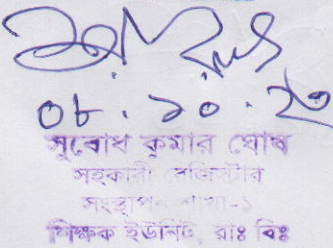 ০৮.১০.২৩
সুবোধ কুমার ঘোষ
সহকারী রেজিস্ট্রার
সংস্থাপন শাখা-১
শিক্ষক ইউনিট, রাঃ বিঃ